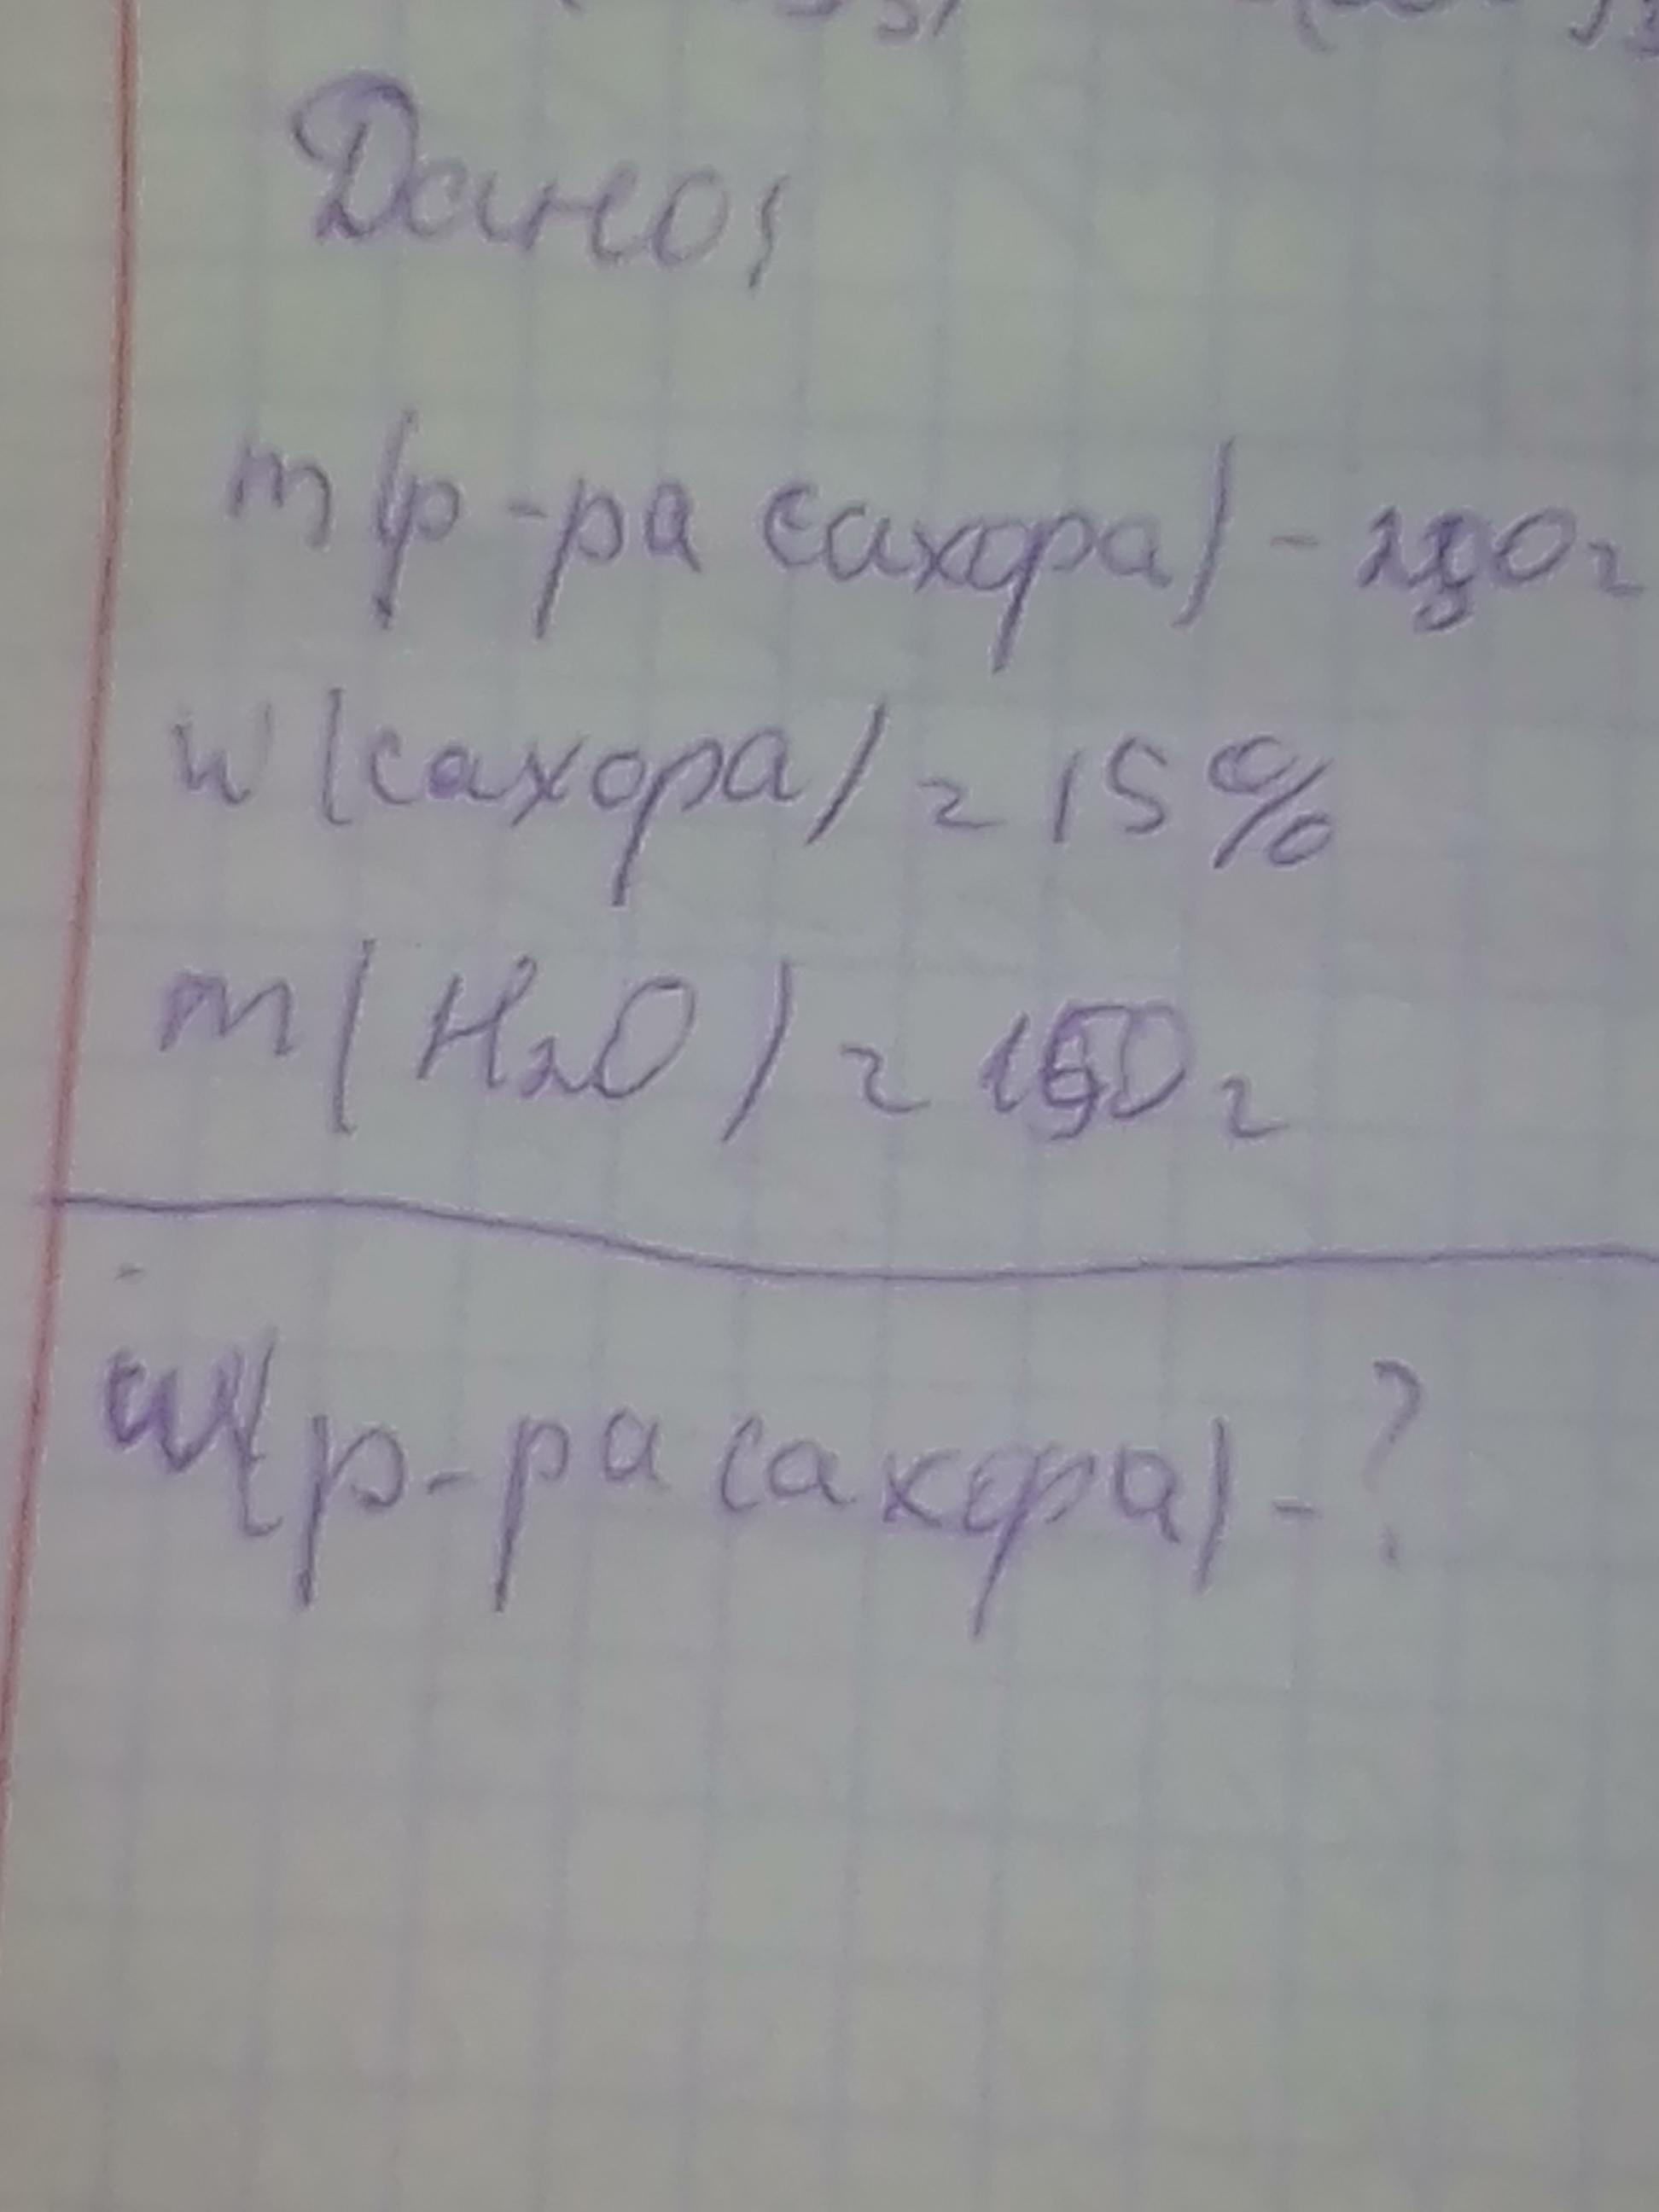 Дано:
m(р-ра сахора) - 250г
w(сахора) = 15%
m(H2O) = 150г
w(р-ра сахора) - ?